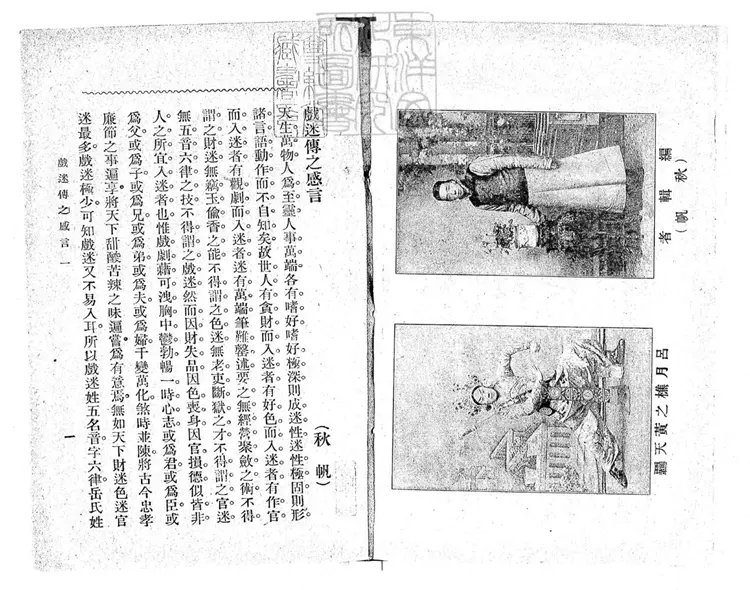 編輯者
（秋帆）
呂月樵之黃天霸
戲迷傳之感言
（秋帆）
天生萬物。人爲至靈。人事萬端。各有嗜好。嗜好極深。則成迷性。迷性極固。則形
諸言語動作而不自知矣。故世人有貪財而入迷者。有好色而入迷者。有作官
而入迷者。有觀劇而入迷者。迷有萬端。筆難罄述。要之無經營聚斂之術。不得
謂之財迷。無竊玉偷香之能。不得謂之色迷。無老吏斷獄之才。不得謂之官迷。
無五音六律之技。不得謂之戲迷。然而因財失品。因色喪身。因官損德。似皆非
人之所宜入迷者也。惟戲劇藉可洩胸中鬱勃。暢一時心志。或爲君。或爲臣。或
爲父。或爲子。或爲兄。或爲弟。或爲夫。或爲婦。千變萬化。煞時並陳。將古今忠孝
廉節之事遍享。將天下甜酸苦辣之味遍嘗。爲有意焉。無如天下財迷色迷官
迷最多。戲迷極少。可知戲迷又不易入耳。所以戲迷姓五名音字六律岳氏姓
戲迷傳之感言 一
一